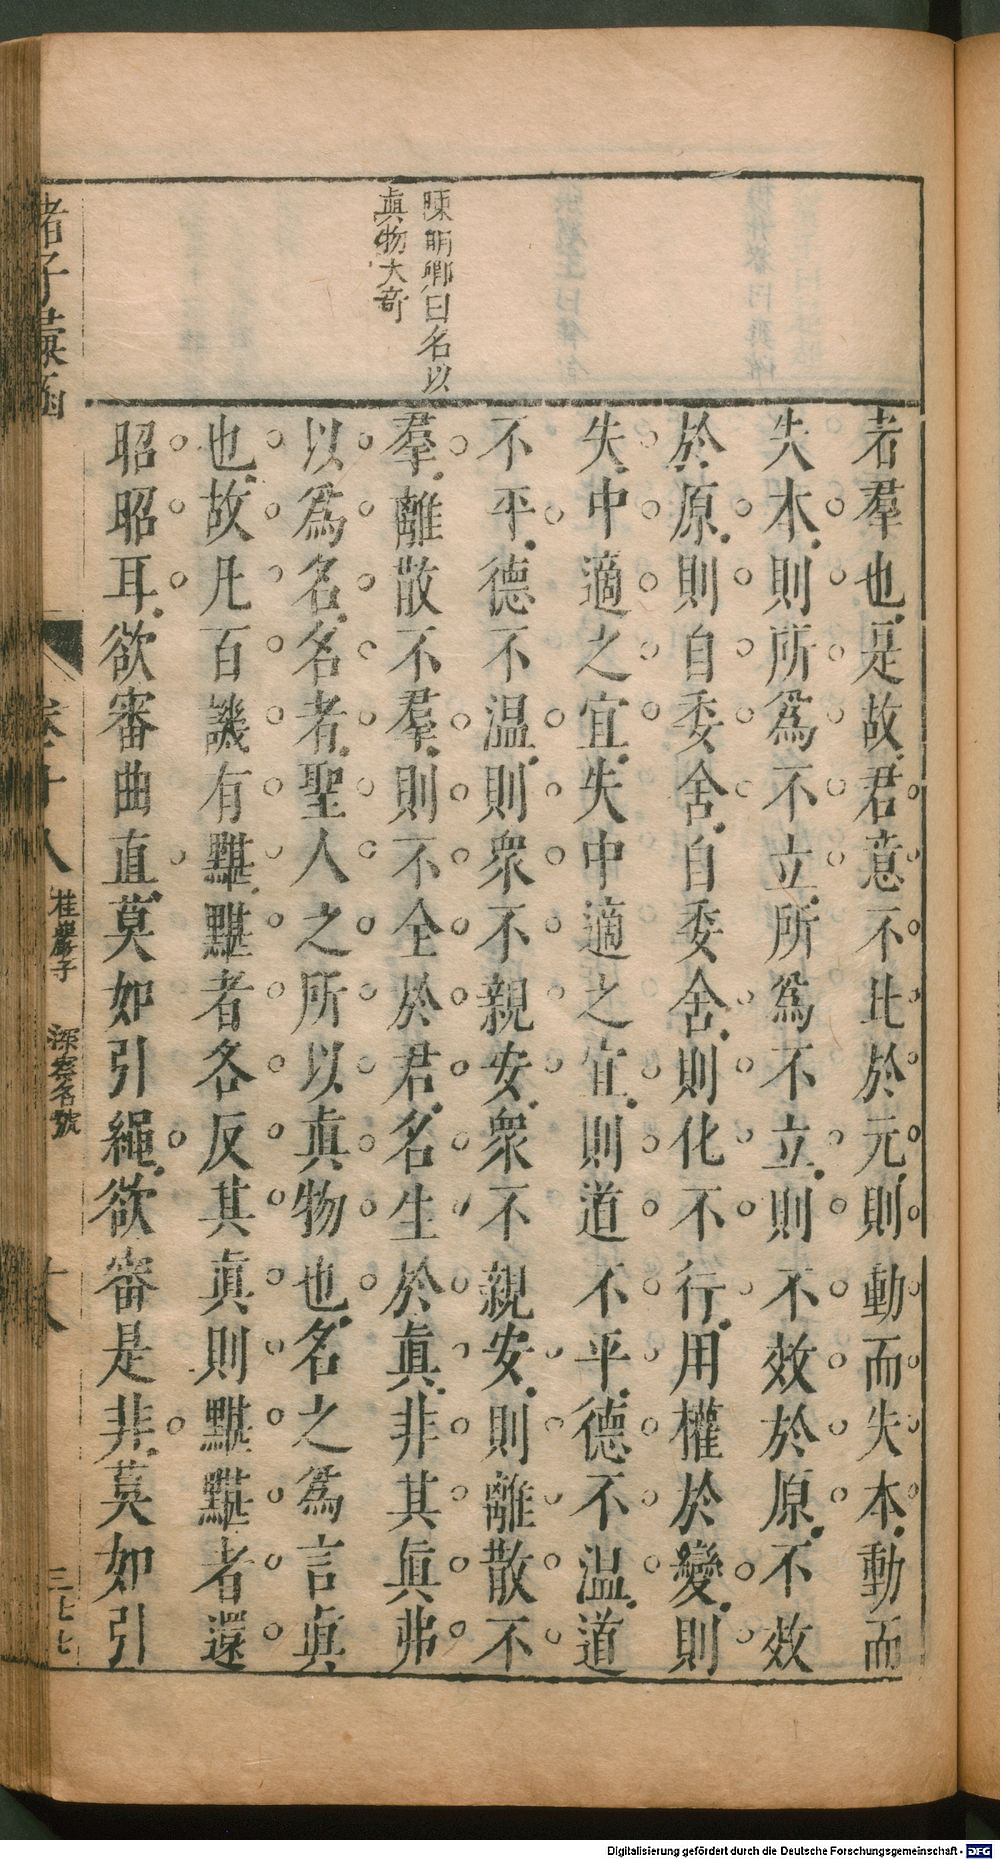 陳明卿曰名以
眞物大奇
者羣也是故君意不比於元則動而失本動而
失本則所爲不立所爲不立則不效於原不效
於原則自委舍自委舍則化不行用權於變則
失中適之宜失中適之宜則道不平德不温道
不平德不温則衆不親安衆不親安則離散不
羣離散不羣則不全於君名生於眞非其眞弗
以爲名名者聖人之所以眞物也名之爲言眞
也故凡百譏有黮黮者各反其眞則黮黮者還
昭昭耳欲審曲直莫如引繩欲審是非莫如引
諸子彙函
卷十八
桂巖子
深察名號
十八
三七七
Digitalisierung gefördert durch die Deutsche Forschungsgemeinschaft - DFG